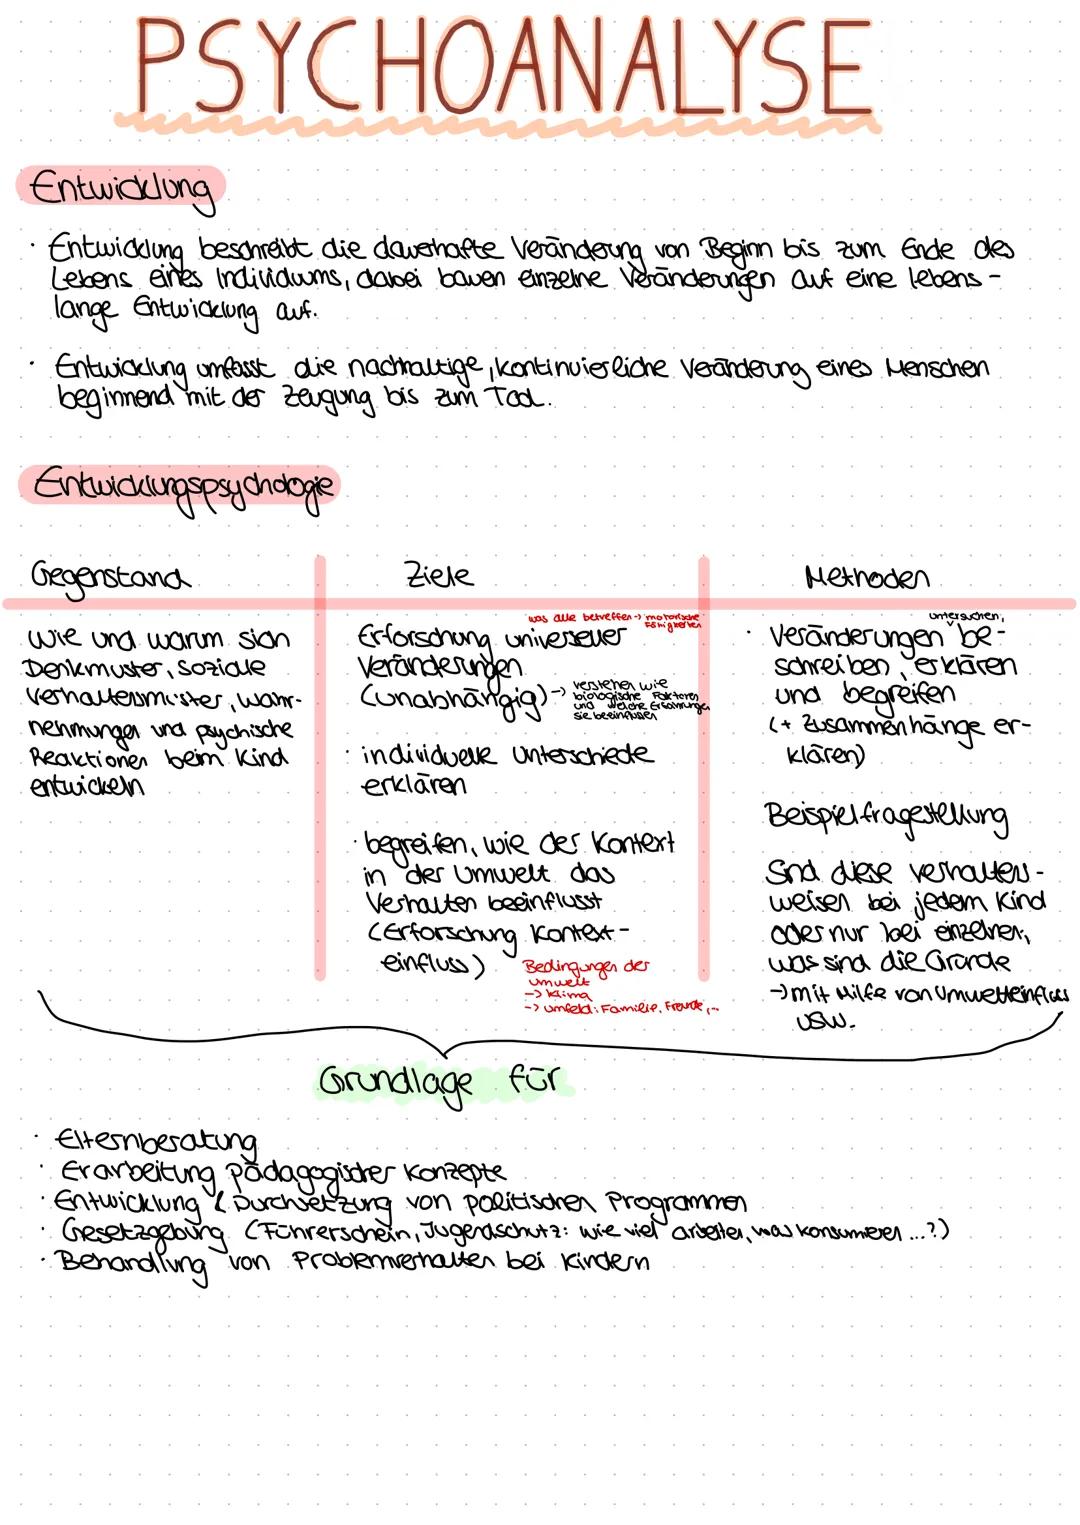 PSYCHOANALYSE
Entwicklung
· Entwicklung beschreibt die dauerhafte Veränderung von Beginn bis zum Ende des
Lebens eines Individiums, dabei bauen einzelne Veränderungen auf eine lebens-
lange Entwicklung auf.
· Entwicklung umfasst die nachhaltige, kontinuierliche Veränderung eines Menschen
beginnend mit der Zeugung bis zum Tod.
Entwicklungspsychologie
Gegenstand
wie und warum sich
Denkmuster, soziale
Verhaltensmuster, Wahr-
nehmungen und psychische
Reaktionen beim Kind
entwickeln
Ziele
was alle betreffen -> motorische
Fähigkeiten
Erforschung universeller
Veränderungen
(unabhängig) -> verstehen wie
biologische Faktoren
und welche Erfahrungen
sie beeinflussen
· individuelle Unterschiede
erklären
· begreifen, wie der Kontext
in der Umwelt das
Verhalten beeinflusst
(Erforschung Kontext-
einfluss)
Bedingungen der
Umwelt
-> Klima
-> Umfeld: Familie, Freunde,...
Methoden
untersuchen,
· Veränderungen be-
schreiben, erklären
und begreifen
(+ Zusammenhänge er-
klären)
Beispielfragestellung
Sind diese verhaltens-
weisen bei jedem Kind
oder nur bei einzelnen,
was sind die Gründe
-> mit Hilfe von Umwelteinfluss
usw.
Grundlage für
· Elternberatung
· Erarbeitung pädagogischer Konzepte
· Entwicklung & Durchsetzung von politischen Programmen
· Gesetzgebung (Führerschein, Jugendschutz: wie viel arbeiten, was konsumieren ...?)
· Behandlung von Problemverhalten bei Kindern